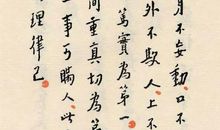 身不妄動口不
外不欺人上不
篤實為第一
間重真切為第
事可瞞人此
理律己